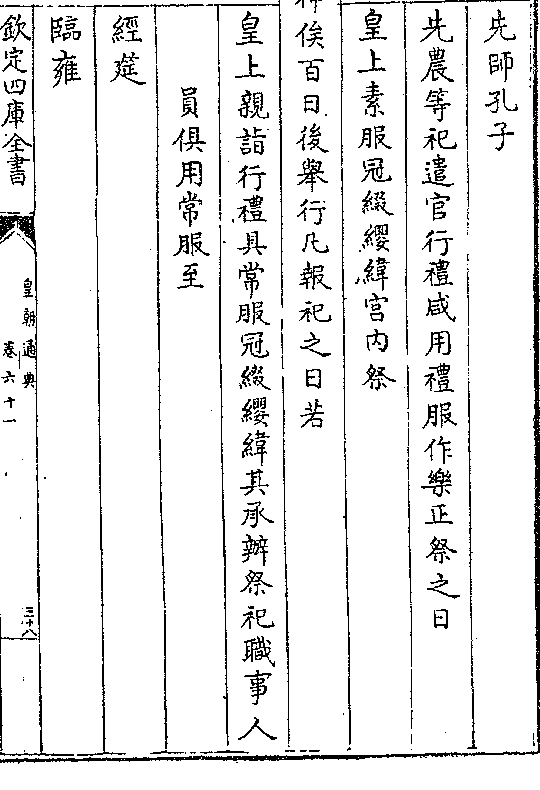 先師孔子
先農等祀遣官行禮咸用禮服作樂正祭之日
皇上素服冠綴纓緯宮内祭
神俟百日後舉行凡報祀之日若
皇上親詣行禮具常服冠綴纓緯其承辦祭祀職事人
員俱用常服至
經筵
臨雍
欽定四庫全書
皇朝通典
卷六十一
三十八